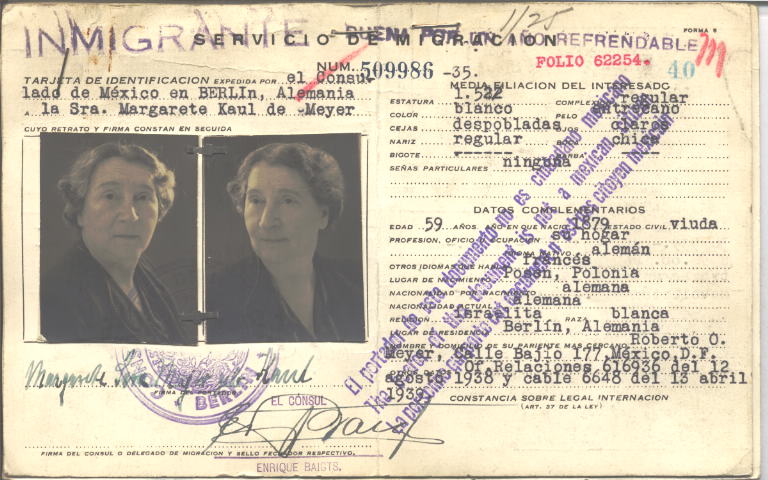 INMIGRANTE
SERVICIO DE MIGRACION
BUENA POR UN AÑO REFRENDABLE
11/25
FORMA 5
NUM. 509986 -35.
FOLIO 62254.
40
TARJETA DE IDENTIFICACION EXPEDIDA POR el Consu-
lado de México en BERLIn, Alemania
A la Sra. Margarete Kaul de -Meyer
CUYO RETRATO Y FIRMA CONSTAN EN SEGUIDA
MEDIA FILIACION DEL INTERESADO
ESTATURA 1.522 COMPLEXION regular
COLOR blanco PELO entrecano
CEJAS despobladas OJOS claros
NARIZ regular BOCA chica
BIGOTE ------ BARBA
SEÑAS PARTICULARES ninguna
DATOS COMPLEMENTARIOS
EDAD 59 AÑOS. AÑO EN QUE NACIO 1879 ESTADO CIVIL viuda
PROFESION, OFICIO U OCUPACION su hogar
IDIOMA NATIVO alemán
OTROS IDIOMAS QUE HABLA francés
LUGAR DE NACIMIENTO Posen, Polonia
NACIONALIDAD POR NACIMIENTO alemana
NACIONALIDAD ACTUAL alemana
RELIGION Israelita RAZA blanca
LUGAR DE RESIDENCIA Berlín, Alemania
NOMBRE Y DOMICILIO DE SU PARIENTE MAS CERCANO Roberto O.
Meyer, Calle Bajío 177, México, D.F.
Of. Relaciones 616936 del 12
agosto 1938 y cable 6648 del 13 abril
1939
CONSTANCIA SOBRE LEGAL INTERNACION
(ART. 37 DE LA LEY)
El portador de este documento no es ciudadano mexicano
The bearer of this document is not a mexican citizen
Margarete Kaul
FIRMA DEL PORTADOR
BERLIN
EL CÓNSUL
FIRMA DEL CONSUL O DELEGADO DE MIGRACION Y SELLO FECHADOR RESPECTIVO.
ENRIQUE BAIGTS.